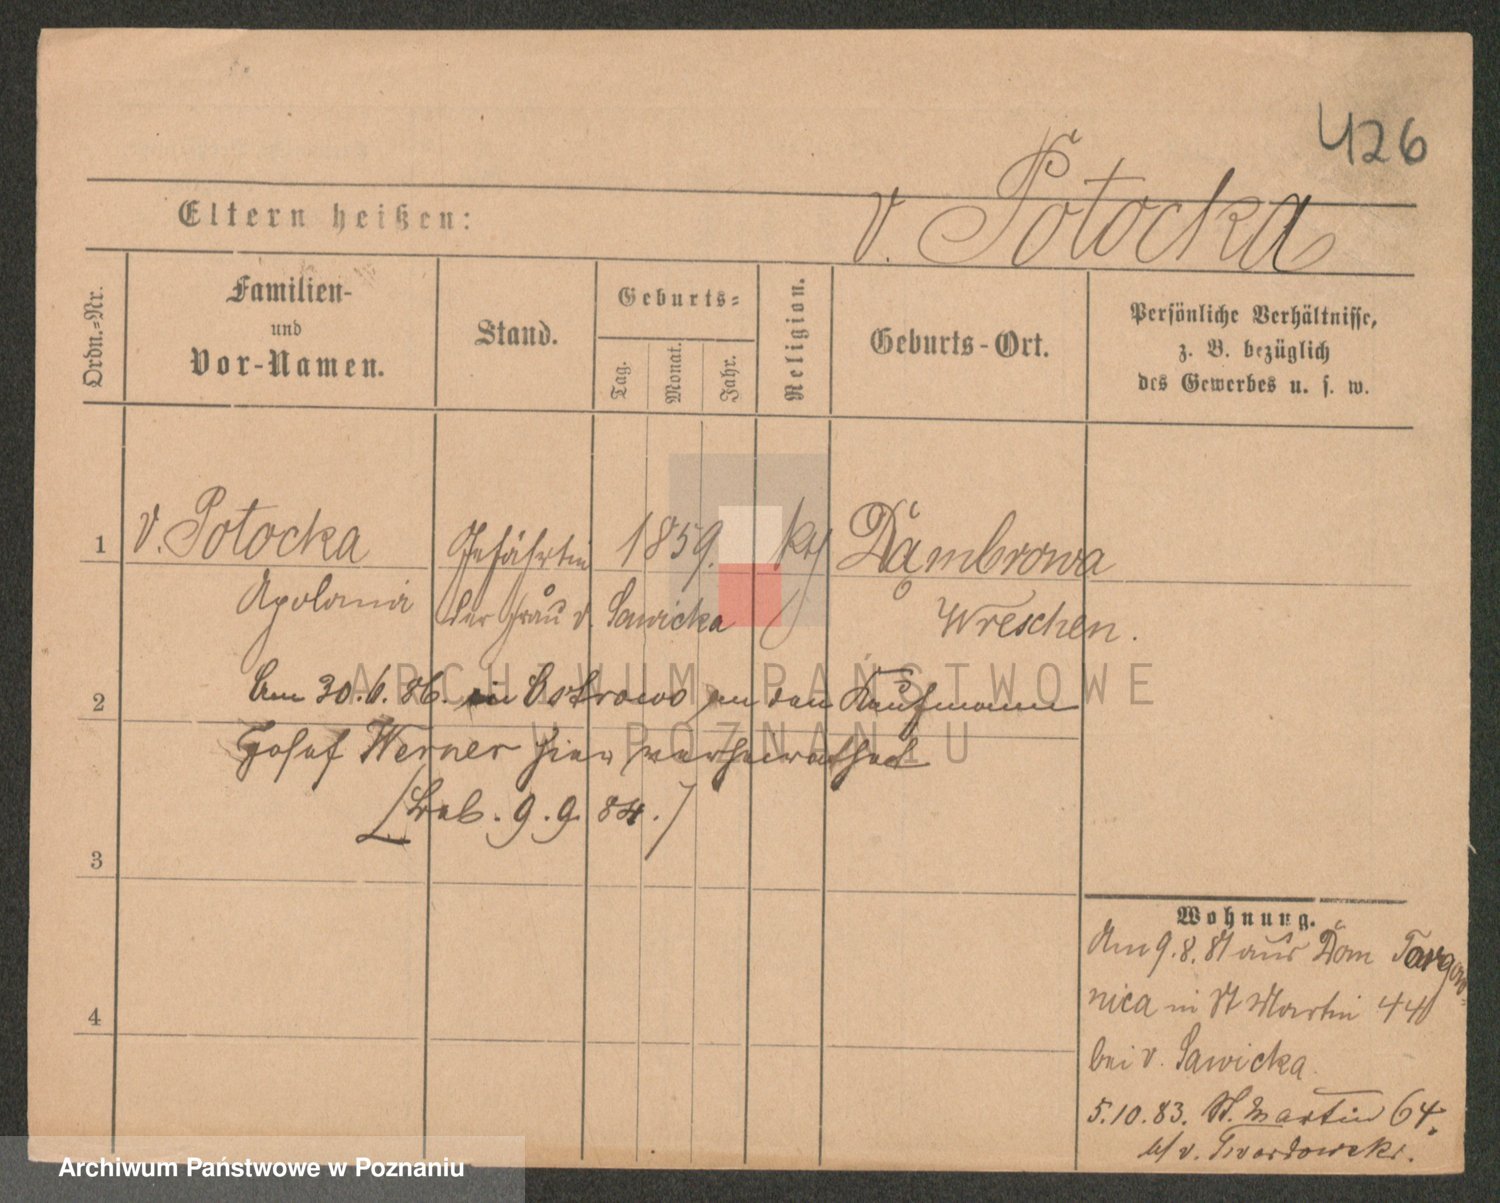 426
v. Potocka
Eltern heißen:
Ordn.=Nr.
Familien-
und
Vor-Namen.
Stand.
Geburts=
Tag.
Monat.
Jahr.
Religion.
Geburts-Ort.
Persönliche Verhältnisse,
z. B. bezüglich
des Gewerbes u. s. w.
1 v. Potocka Gefährtin 1859. kth Dąmbrowa
Apolonia der Frau v. Sawicka Wreschen.
Am 30.6.86. in Ostrowo an den Kaufmann
2
Josef Werner hier verheirathet
[Leb. 9.9.84.]
3
4
Wohnung.
Am 9.8.81 aus Dom Targow-
nica in St Martin 44
bei v. Sawicka
5.10.83. St. Martin 64.
b/ v. Twardowski.
ARCHIWUM PAŃSTWOWE
W POZNANIU
Archiwum Państwowe w Poznaniu